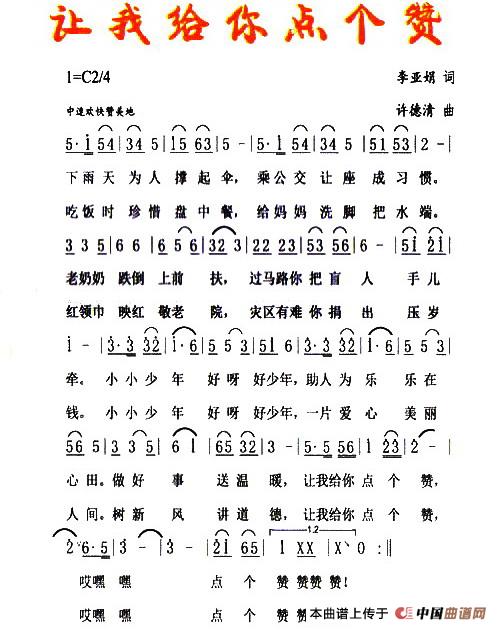 让我给你点个赞
1=C2/4
李亚娟 词
中速欢快赞美地
许德清 曲
5·1 54|34 34|15 63|5-|5·1 54|34 34|56 53|2-|
下雨天为人撑起伞，乘公交让座成习惯。
吃饭时珍惜盘中餐，给妈妈洗脚把水端。
3 3 5|6 6|6 5 6|32 3|22 23|53 56|6-|51 21|
老奶奶跌倒上前扶，过马路你把盲人手儿
红领巾映红敬老院，灾区有难你捐出压岁
1-|3·3|3 32|1·6|5 5|56 51|6 3|32 1·2|3 5|
牵。小小少年好呀好少年，助人为乐乐在
钱。小小少年好呀好少年，一片爱心美丽
心田。做好事送温暖，让我给你点个赞，
人间。树新风讲道德，让我给你点个赞，
1.2
哎嘿嘿点个赞赞赞赞！
哎嘿嘿点个赞
本曲谱上传于
中国曲谱网